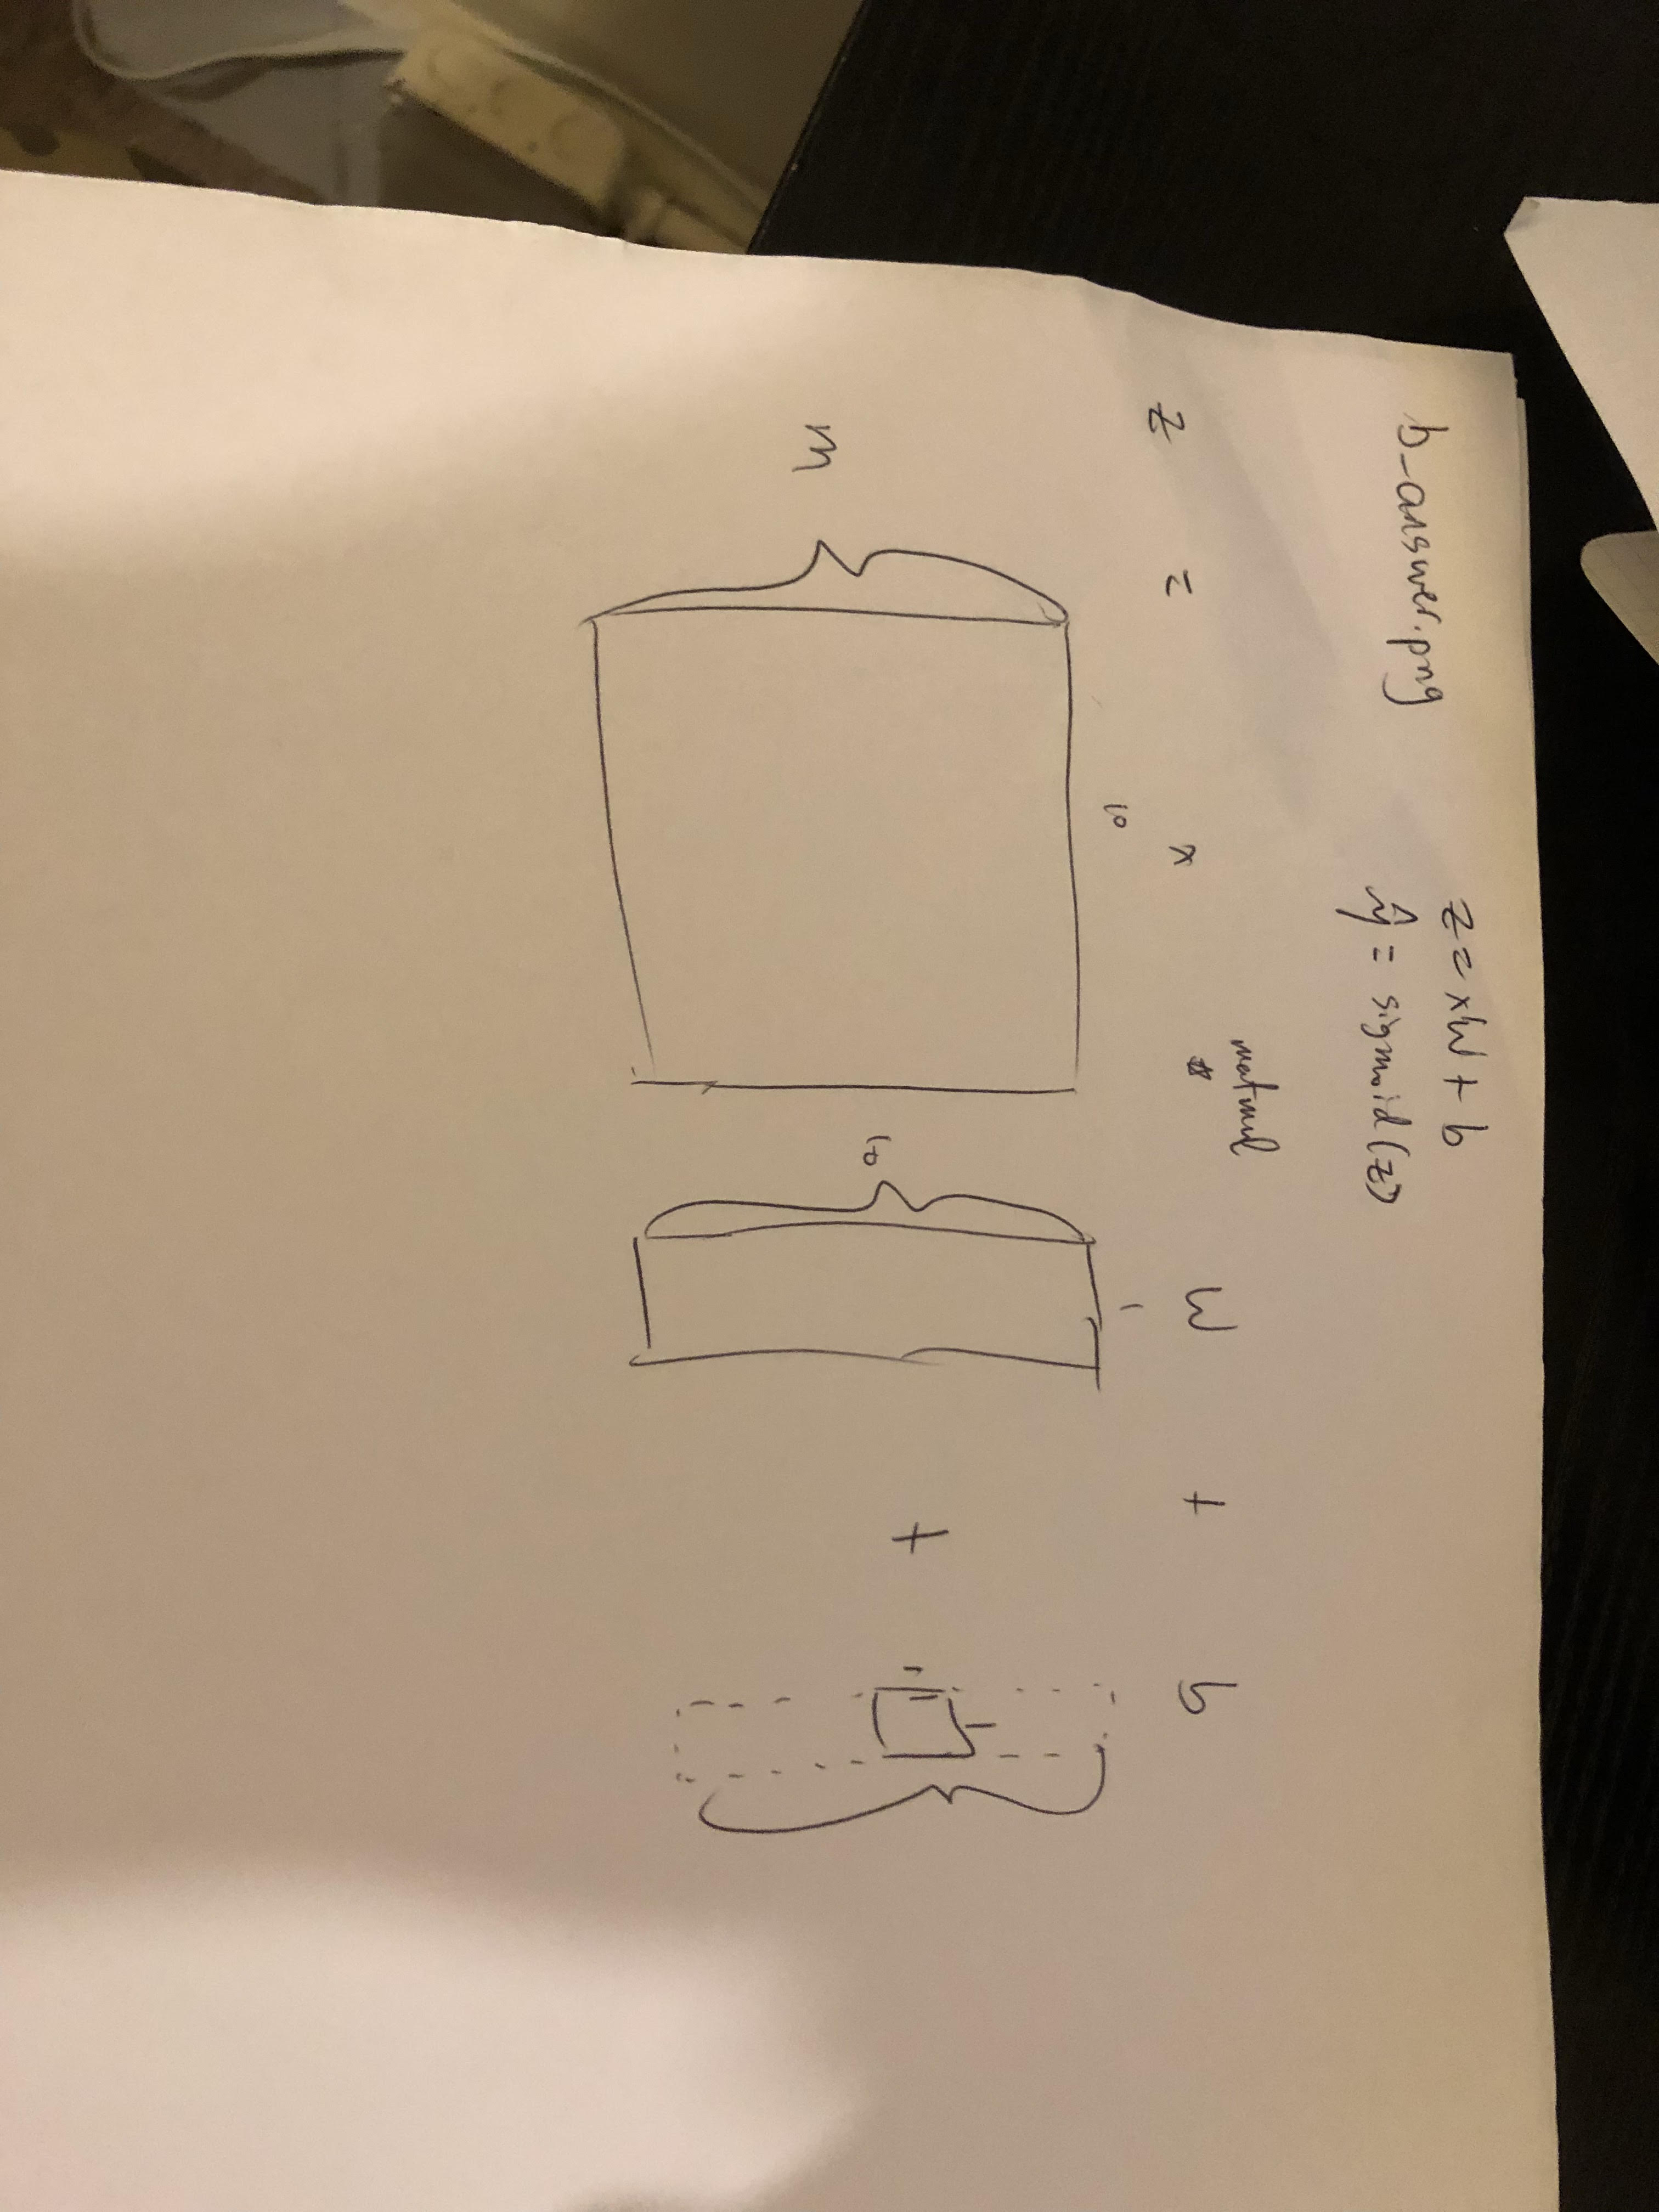 b_answer.png
z = xW + b
ŷ = sigmoid(z)
matmul
z = x * W + b
10 1
m 10 + 1 1